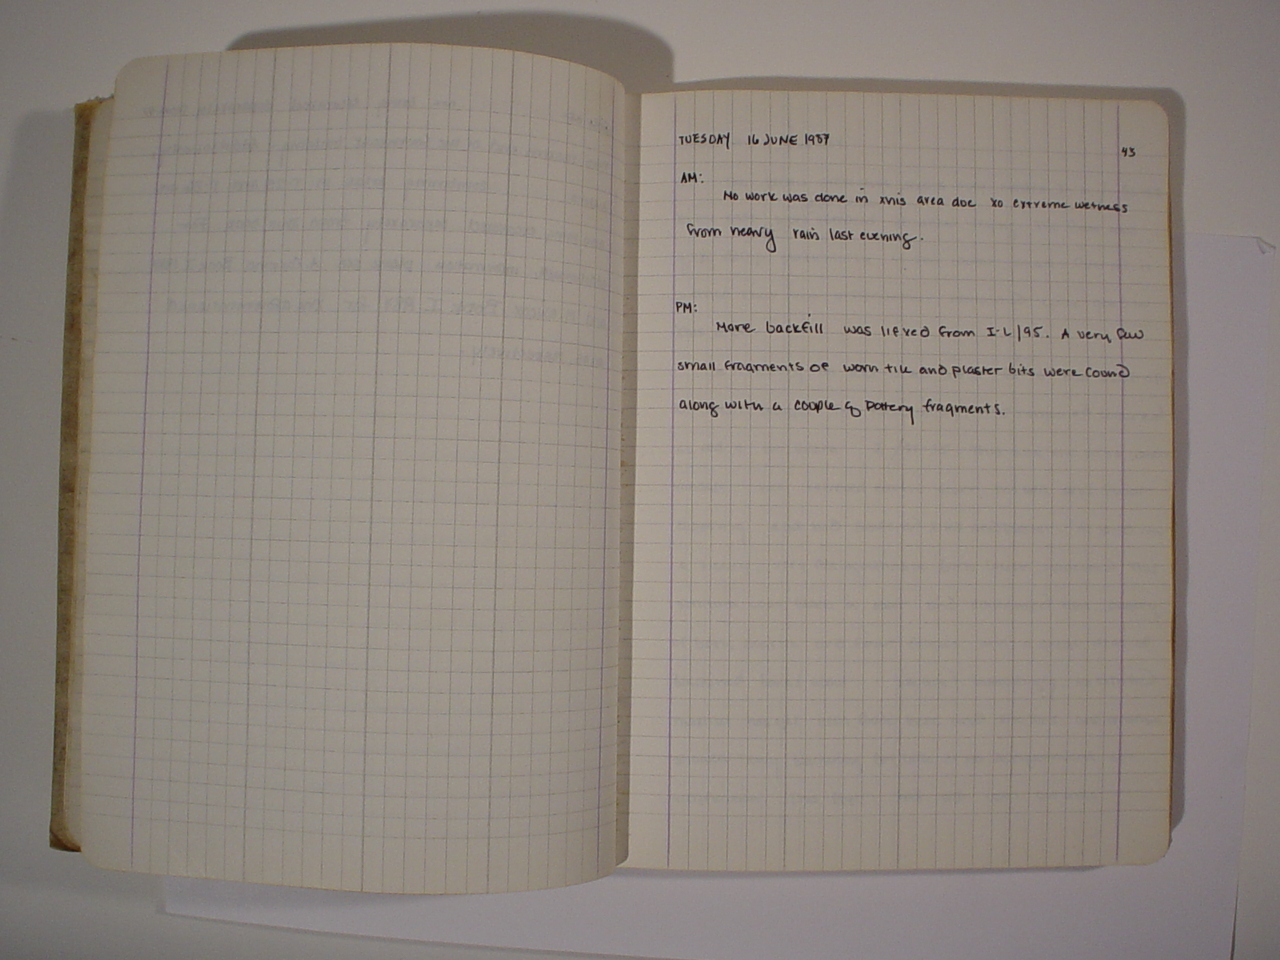 TUESDAY 16 JUNE 1987
43
AM:
No work was done in this area due to extreme wetness
from heavy rain last evening.
PM:
More backfill was lifted from I-L/95. A very few
small fragments of worn tile and plaster bits were found
along with a couple of pottery fragments.